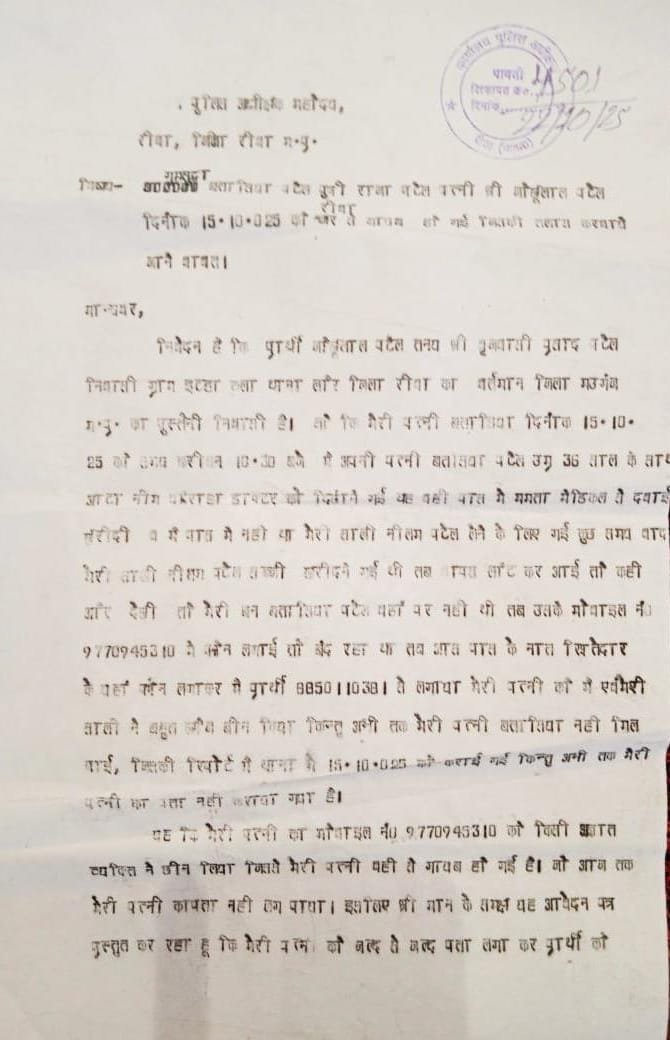 कार्यालय पुलिस अधीक्षक
पावती
शिकायत क्र०... 4501
दिनांक... 22/10/25
रीवा (म०प्र०)
पुलिस अधीक्षक महोदय,
रीवा, जिला रीवा म॰पु॰
गुमशुदा
विषय- बतासिया पटेल पुत्री राजा पटेल पत्नी श्री जोखूलाल पटेल
रीवा
दिनाँक 15•10•025 को घर से गायब हो गई जिसकी तलाश करवाये
जाने वावत।
मान्यवर,
निवेदन है कि पुार्थी जोखूलाल पटेल तनय श्री पुसाद पटेल
निवासी ग्राम इटहा कला थाना लौर जिला रीवा का वर्तमान जिला मउगंज
म॰पु॰ का पुस्तैनी निवासी है। जो कि मेरी पत्नी बतासिया दिनाँक 15•10•
25 को समय करीबन 10•30 बजे मै अपनी पत्नी बतासिया पटेल उम्र 36 साल के साथ
डाक्टर को दिखाने गई थी वही पास मे ममता मेडिकल से दवाई
खरीदी व मै पास मे नही था मेरी साली नीलम पटेल लेने के लिए गई कुछ समय वाद
मेरी साली नीलम पटेल सब्जी खरीदने गई थी तब वापस लौट कर आई तो कही
और देखी तो मेरी बन बतासिया पटेल वहाँ पर नही थी तब उसके मोवाइल नं0
9770945310 मे फोन लगाई तो बंद रहा था तब आस पास के नात रिश्तेदार
के यहाँ फोन लगाकर मै पुार्थी से लगाया मेरी पत्नी को मै एवंमेरी
साली ने बहुत खोज बीन किया किन्तु अभी तक मेरी पत्नी बतासिया नही मिल
पाई, जिसकी रिपोर्ट मै थाना मे 15•10•025 को कराई गई किन्तु अभी तक मेरी
पत्नी का पता नही कराया गया है।
यह कि मेरी पत्नी का मोवाइल नं0 9770945310 को किसी अज्ञात
व्यक्ति ने छीन लिया जिससे मेरी पत्नी वही से गायब हो गई है। जो आज तक
मेरी पत्नी कापता नही लग पाया। इसलिए श्री मान के समक्ष यह आवेदन पत्र
पुस्तुत कर रहा हू कि मेरी पत्नी को जल्द से जल्द पता लगा कर पुार्थी को